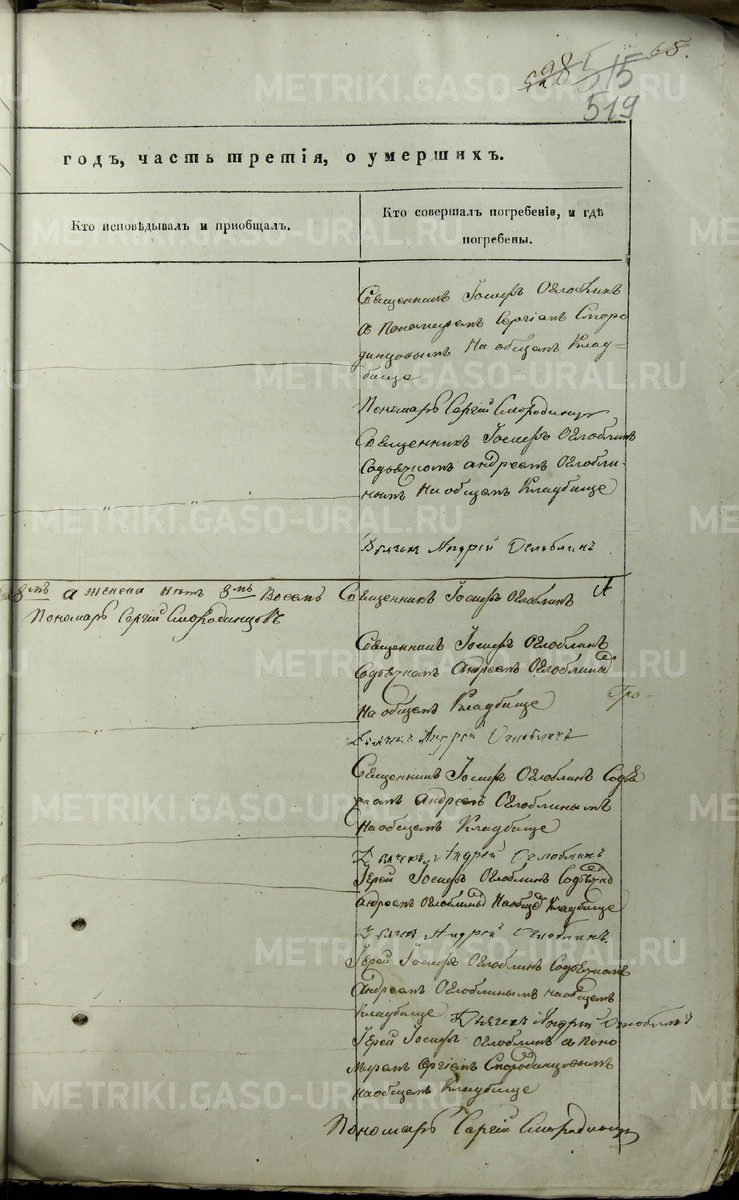 528 515 68.
519
годъ, часть третія, о умершихъ.
Кто исповѣдывалъ и пріобщалъ.
Кто совершалъ погребеніе, и гдѣ
погребены.
Священникъ Іосифъ Оглоблинъ
съ Пономаремъ Сергіемъ Сморо
динцовымъ На общемъ Клад-
бище
Пономарь Сергій Смородинцовъ
Священникъ Іосифъ Оглоблинъ
Содьячкомъ андреемъ Оглобли-
нымъ На общемъ Кладбище
Дьячекъ Андрей Оглоблинъ
8мъ а женска нѣтъ 8мъ Восемь Священникъ Іосифъ Оглоблинъ
Пономарь Сергій Смородинцовъ
Священникъ Іосифъ Оглоблинъ
Содьячкомъ Андреемъ Оглоблины
На общемъ Кладбище
Дьячекъ Андрей Оглоблинъ
Священникъ Іосифъ Оглоблинъ Содья
чкомъ андреемъ Оглоблинымъ
На общемъ Кладбище
Дьячекъ Андрей Оглоблинъ
Іерей Іосифъ Оглоблинъ Содьячко
андреемъ Оглоблины На обще Кладбище
Дьячекъ Андрей Оглоблинъ
Іерей Іосифъ Оглоблинъ Содьячкомъ
Андреемъ Оглоблинымъ на общемъ
Кладбище Дьячекъ Андрей Оглоблинъ
Іерей Іосифъ Оглоблинъ съ Поно
маремъ Сергіемъ Смородинцовымъ
На общемъ Кладбище
Пономарь Сергій Смородинцовъ
METRIKI.GASO-URAL.RU